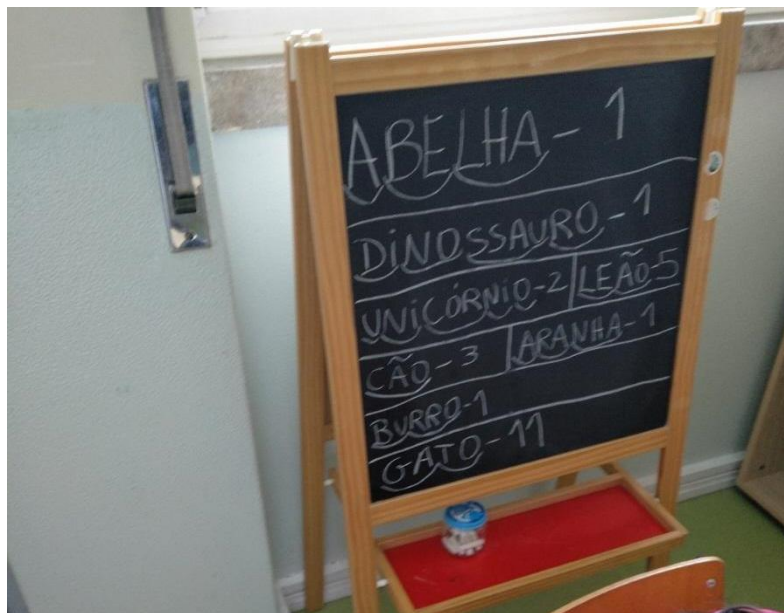 ABELHA - 1
DINOSSAURO - 1
UNICÓRNIO - 2 LEÃO - 5
CÃO - 3 ARANHA - 1
BURRO - 1
GATO - 11